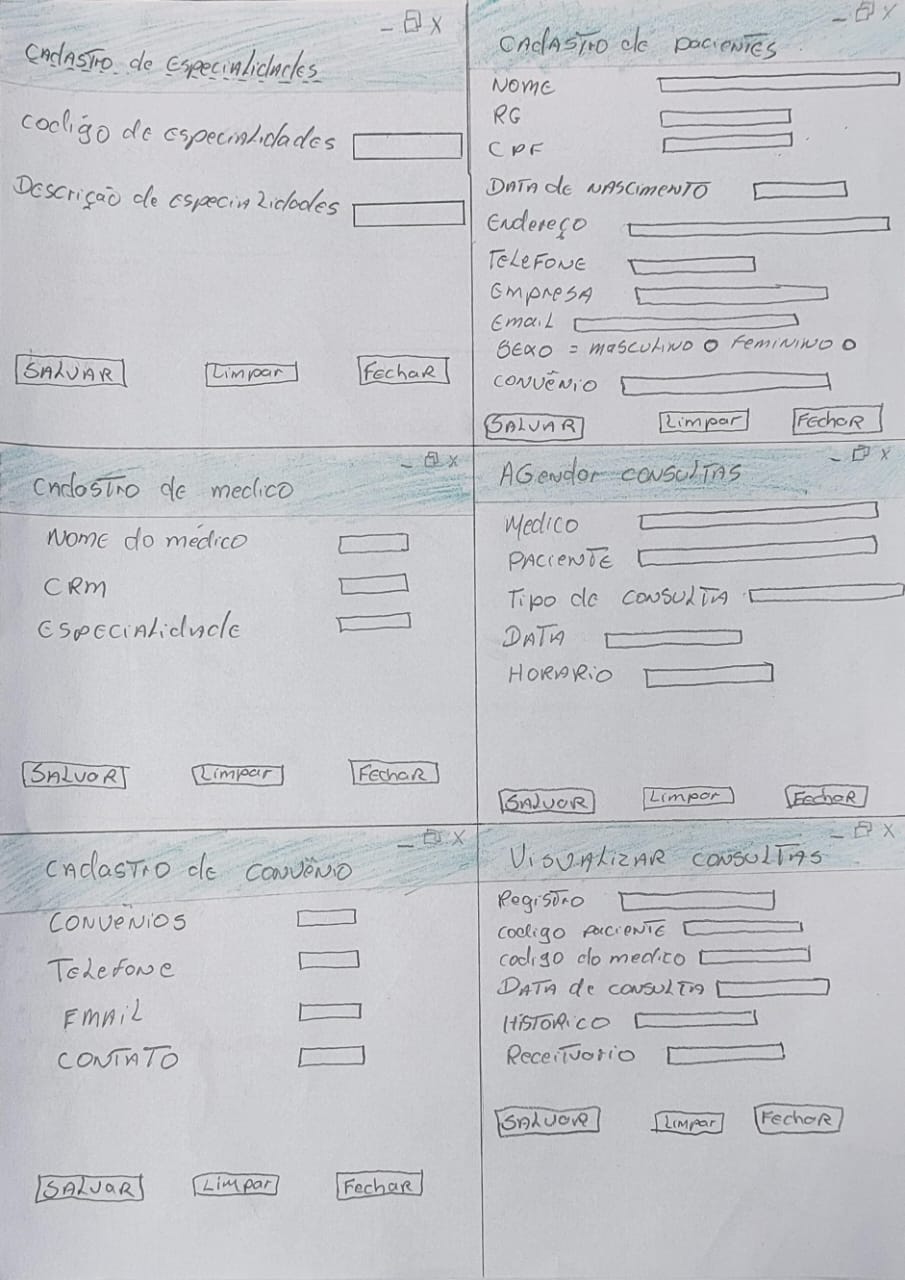 Cadastro de Especialidades
Codigo de especialidades
Descrição de especialidades
SALVAR Limpar Fechar
Cadastro de pacientes
NOME
RG
CPF
DATA de NASCIMENTO
Endereço
TELEFONE
Empresa
Email
SEXO = MASCULINO O FEMININO O
CONVÊNIO
SALVAR Limpar Fechar
Cadastro de medico
NOME do médico
CRM
Especialidade
SALVAR Limpar Fechar
Agendar CONSULTAS
Medico
PACIENTE
Tipo de CONSULTA
DATA
HORARIO
SALVAR Limpar Fechar
Cadastro de Convênio
CONVÊNIOS
Telefone
EMAIL
CONTATO
SALVAR Limpar Fechar
Visualizar CONSULTAS
Registro
codigo PACIENTE
codigo do medico
DATA de CONSULTA
HISTORICO
Receituario
SALVAR Limpar Fechar